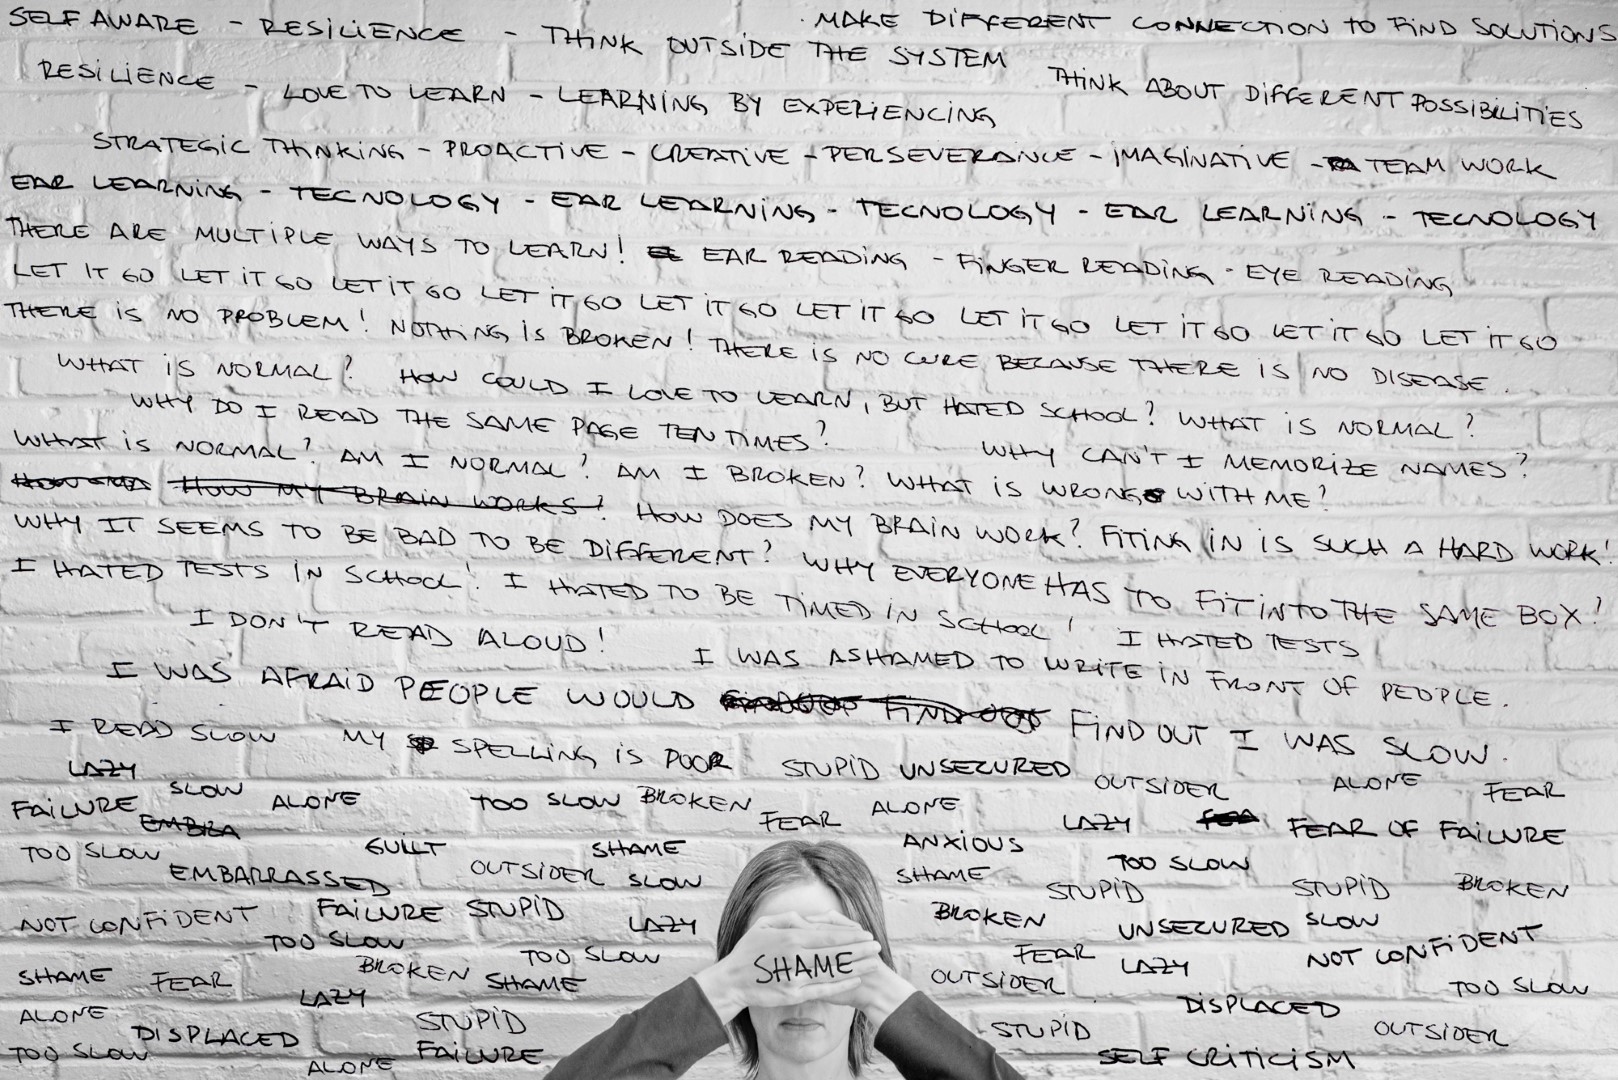 SELF AWARE - RESILIENCE - THINK OUTSIDE THE SYSTEM
MAKE DIFFERENT CONNECTION TO FIND SOLUTIONS
RESILIENCE - LOVE TO LEARN - LEARNING BY EXPERIENCING
THINK ABOUT DIFFERENT POSSIBILITIES
STRATEGIC THINKING - PROACTIVE - CREATIVE - PERSEVERANCE - IMAGINATIVE - TEAM WORK
EAR LEARNING - TECNOLOGY - EAR LEARNING - TECNOLOGY - EAR LEARNING - TECNOLOGY
THERE ARE MULTIPLE WAYS TO LEARN! EAR READING - FINGER READING - EYE READING
LET IT GO LET IT GO LET IT GO LET IT GO LET IT GO LET IT GO LET IT GO LET IT GO LET IT GO LET IT GO
THERE IS NO PROBLEM! NOTHING IS BROKEN! THERE IS NO CURE BECAUSE THERE IS NO DISEASE.
WHAT IS NORMAL? HOW COULD I LOVE TO LEARN, BUT HATED SCHOOL? WHAT IS NORMAL?
WHY DO I READ THE SAME PAGE TEN TIMES?
WHY CAN'T I MEMORIZE NAMES?
WHAT IS NORMAL? AM I NORMAL? AM I BROKEN? WHAT IS WRONG WITH ME?
HOW MY BRAIN WORKS? HOW DOES MY BRAIN WORK? FITING IN IS SUCH A HARD WORK!
WHY IT SEEMS TO BE BAD TO BE DIFFERENT? WHY EVERYONE HAS TO FIT INTO THE SAME BOX?
I HATED TESTS IN SCHOOL! I HATED TO BE TIMED IN SCHOOL! I HATED TESTS
I DON'T READ ALOUD!
I WAS ASHAMED TO WRITE IN FRONT OF PEOPLE.
I WAS AFRAID PEOPLE WOULD FIND OUT FIND OUT I WAS SLOW.
I READ SLOW MY SPELLING IS POOR STUPID UNSECURED OUTSIDER ALONE FEAR
LAZY SLOW
FAILURE ALONE TOO SLOW BROKEN FEAR ALONE LAZY FEAR OF FAILURE
EMBRA
TOO SLOW GUILT SHAME ANXIOUS
EMBARRASSED OUTSIDER SLOW SHAME TOO SLOW
STUPID STUPID BROKEN
NOT CONFIDENT FAILURE STUPID LAZY BROKEN UNSECURED SLOW
TOO SLOW TOO SLOW FEAR LAZY NOT CONFIDENT
SHAME FEAR BROKEN SHAME SHAME OUTSIDER TOO SLOW
LAZY DISPLACED
ALONE DISPLACED STUPID STUPID OUTSIDER
TOO SLOW ALONE FAILURE SELF CRITICISM